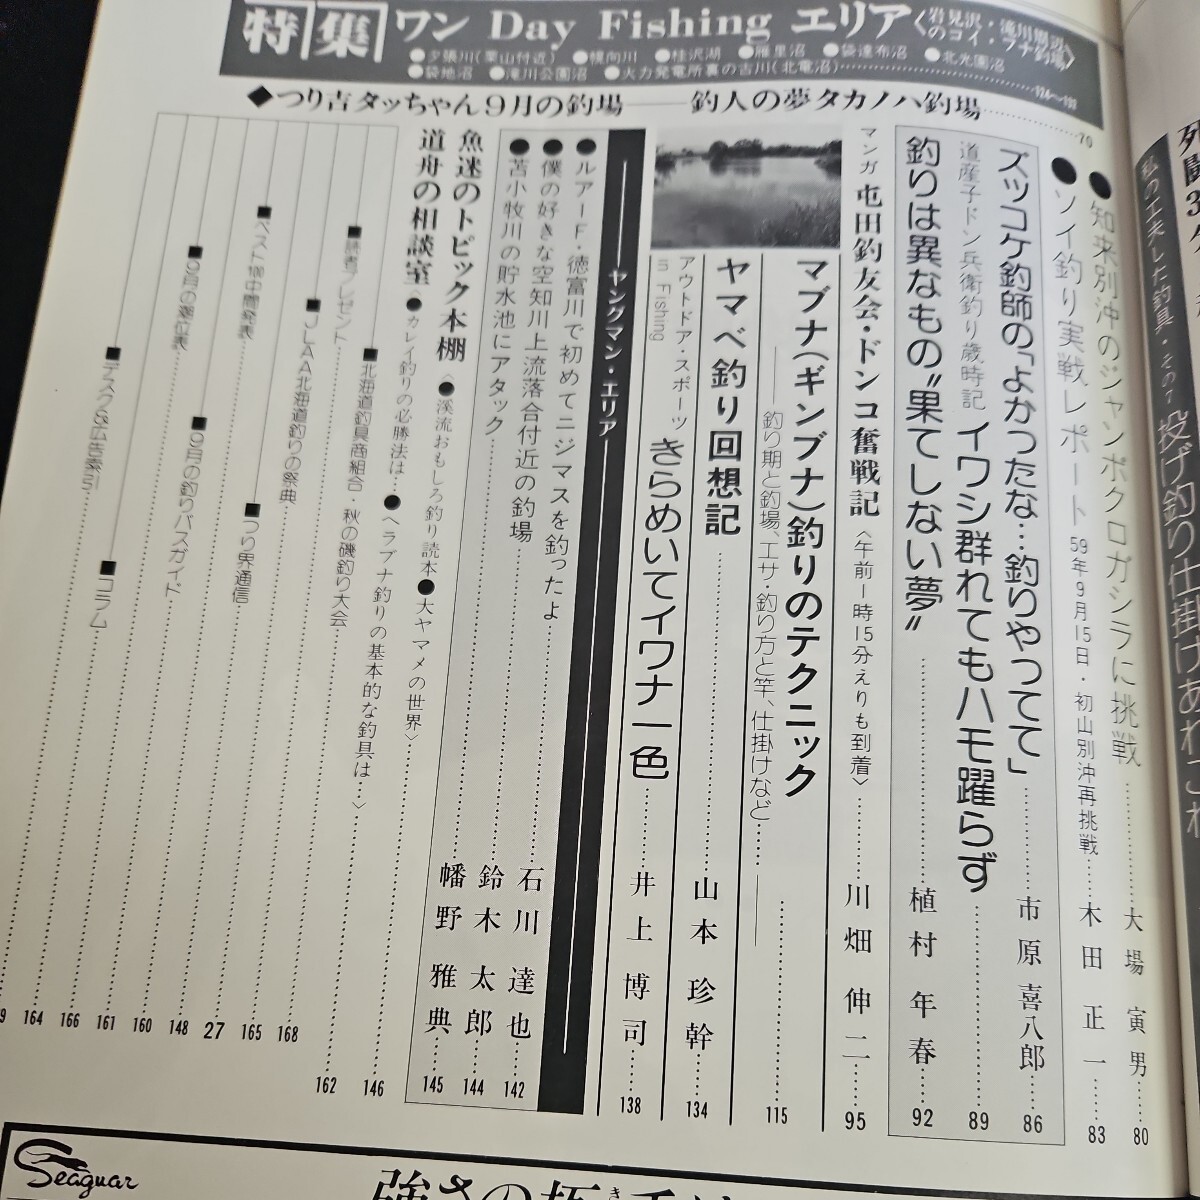 特集 ワン Day Fishing エリア〈岩見沢・滝川周辺のコイ・フナ釣場〉
●夕張川(栗山付近)●幌向川●桂沢湖●雁里沼●袋達布沼●北光園沼
●袋地沼●滝川公園沼●火力発電所裏の古川(北竜沼)
◆つり吉タッちゃん9月の釣場――釣人の夢タカノハ釣場 70
死闘3
私の工夫した釣具・その7 投げ釣り仕掛けあれこれ
●知来別沖のジャンボクロガシラに挑戦 大場寅男 80
●ソイ釣り実戦レポート 59年9月15日・初山別沖再挑戦 木田正一 83
ズッコケ釣師の「よかったな…釣りやってて」 市原喜八郎 86
道産子ドン兵衛釣り歳時記 イワシ群れてもハモ躍らず 89
釣りは異なもの“果てしない夢” 植村年春 92
マンガ 屯田釣友会・ドンコ奮戦記〈午前1時15分えりも到着〉 川畑伸二 95
マブナ(ギンブナ)釣りのテクニック
――釣り期と釣場、エサ・釣り方と竿、仕掛けなど―― 115
ヤマベ釣り回想記 山本珍幹 134
アウトドア・スポーツ in Fishing きらめいてイワナ一色 井上博司 138
ヤングマン・エリア
●ルアーF・徳富川で初めてニジマスを釣ったよ 石川達也 142
●僕の好きな空知川上流落合付近の釣場 鈴木太郎 144
●苫小牧川の貯水池にアタック 幡野雅典 145
魚迷のトピック本棚〈●渓流おもしろ釣り読本●大ヤマメの世界〉 146
道舟の相談室〈●カレイ釣りの必勝法は…●ヘラブナ釣りの基本的な釣具は…〉 162
■読者プレゼント
■北海道釣具商組合・秋の磯釣り大会
■JLAA北海道釣りの祭典 168
■ベスト100中間発表
■つり界通信 165
27
■9月の潮位表
■9月の釣りバスガイド 148
160
■デスク&広告索引
■コラム 161
166
164
9
Seaguar